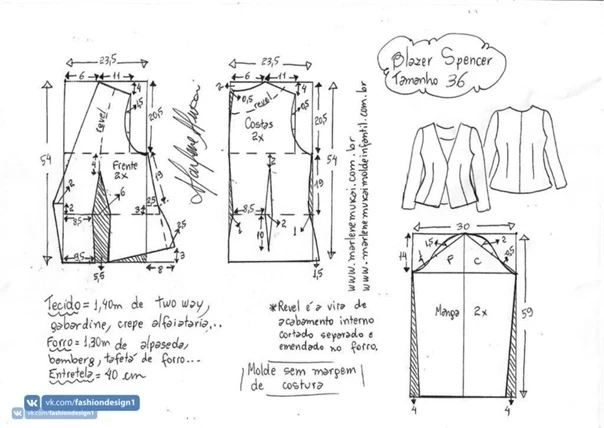 23,5
6 11
4
0,5
1,5
20,5
54
revel
Frente
2x
4
19
6
2
2
3
9,5
2,5
5,5
8
3
Marlene Mukai
23,5
6 11
2
4
0,5
1,5
revel
Costas
2x
20,5
54
2
19
9,5
2
1
1
10
1,5
www.marlenemukai.com.br
www.marlenemukaimoldeinfantil.com.br
Blazer Spencer
Tamanho 36
30
14
1,5
2
1
F C
Manga 2x
59
4 4
Tecido = 1,40m de two way,
gabardine, crepe alfaiataria...
Forro = 1,30m de alpaseda,
bemberg, tafetá de forro...
Entretela = 40 cm
*Revel é a vira de
acabamento interno
cortado separado e
emendado no forro.
Molde sem margem
de costura
vk.com/fashiondesign1
vk.com/fashiondesign1